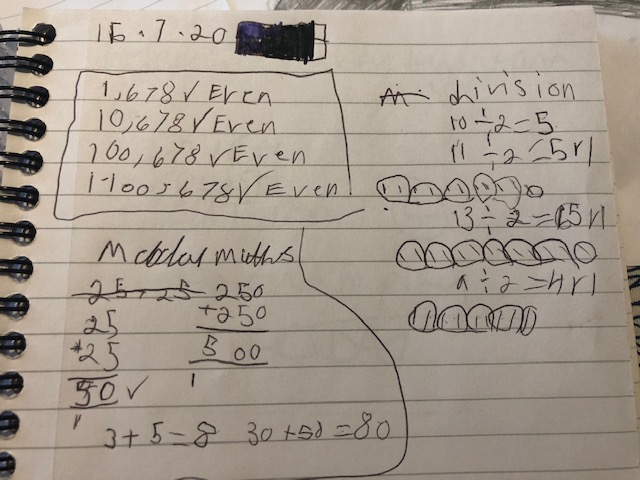 16.7.20
1,678 ✓ Even
10,678 ✓ Even
100,678 ✓ Even
1100,678 ✓ Even
division
10 ÷ 2 = 5
11 ÷ 2 = 5 r1
13 ÷ 2 = 65 r1
9 ÷ 2 = 4 r1
maths
25 + 25
25
+25
50 ✓
1
250
+250
500
1
3 + 5 = 8 30 + 50 = 80